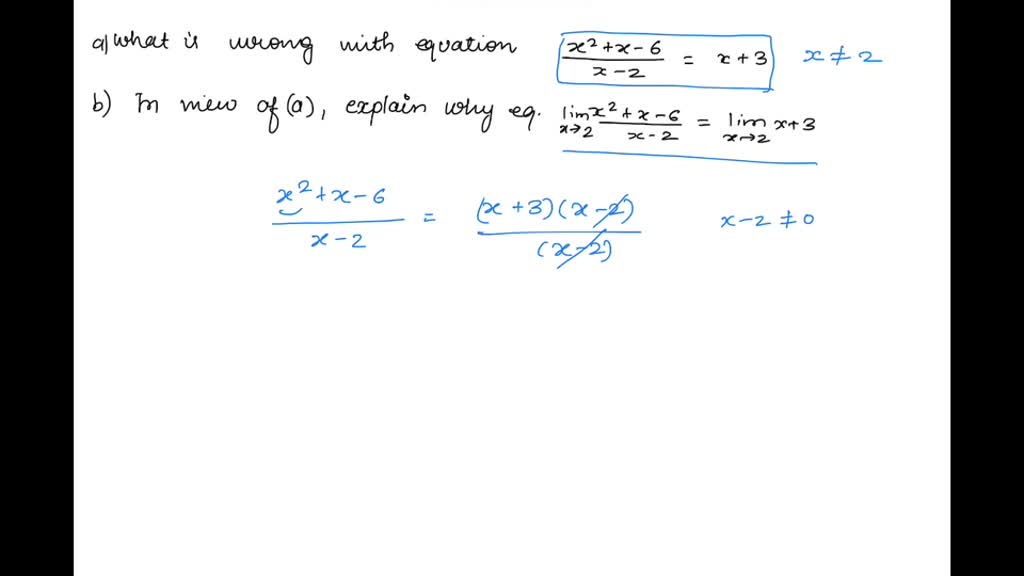 a) what is wrong with equation (x² + x - 6)/(x - 2) = x + 3 x ≠ 2
b) In view of (a), explain why eq. lim x→2 (x² + x - 6)/(x - 2) = lim x→2 x + 3
(x² + x - 6)/(x - 2) = (x + 3)(x - 2)/(x - 2) x - 2 ≠ 0